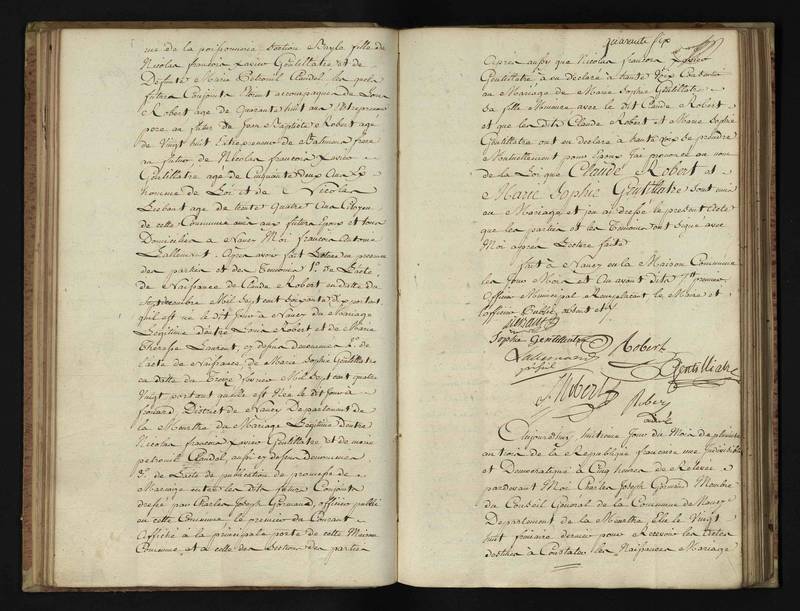 rue de la poissonnerie Section Bayle fille de
Nicolas françois Xavier Gentillatre et de
Defunte Marie Petronil Claudel. les quels
futurs Conjoints étoient accompagnés de Louis
Robert agé de quarante huit ans Entrepreneur
pere au futur de Jean Baptiste Robert agé
de Vingt huit Entrepreneur de Batimens frere
au futur, de Nicolas francois Xavier
Gentillatre agé de Cinquante deux ans
homme de Loi et de Nicolas
agé de trente quatre ans Citoyen
de cette Commune amis aux futurs Epoux et tous
Domiciliés a Nancy Moi françois Antoine
Lallemant. Après avoir fait Lecture en presence
des parties et des Temoins 1°. de l'acte
de Naissance de Claude Robert en datte du
Mil Sept cent Soixante dix portant
qu'il est né le dit Jour à Nancy du Mariage
Légitime d'entre Louis Robert et de Marie
Therese Laurent, 2°. de
l'acte de Naissance, de Marie Sophie Gentillatre
en datte du Treize fevrier Mil Sept cent quatre
Vingt portant quelle est Née le dit Jour à
frouard District de Nancy Departement de
la Meurthe du Mariage Légitime d'entre
Nicolas francois Xavier Gentillatre et de marie
petronil Claudel,
3°. de l'acte de publication de promesse de
Mariage entre les dits futurs Conjoints
dressé par Charles Joseph Germain, officier public
en cette Commune le premier du Courant
affiché à la principale porte de cette Maison
Commune et à celle des Sections des parties
quarante six
Après aussi que Nicolas francois Xavier
Gentillatre a eu declaré à haute voix Consentir
au Mariage de Marie Sophie Gentillatre
Sa fille Mineure avec le dit Claude Robert
et que les dits Claude Robert et Marie Sophie
Gentillatre ont eu declaré à haute voix Se prendre
Mutuellement pour Epoux J'ai prononcé au nom
de la Loi que Claude Robert et
Marie Sophie Gentillatre Sont unis
en Mariage et j'en ai dressé le present acte
que les parties et les Temoins ont Signé avec
Moi après Lecture faite
fait à Nancy en la Maison Commune
les Jour Mois et An avant dits premier
Officier Municipal Remplacant le Maire et
l'officier Public absent
Sophie Gentillatre
Robert
Lallemand
Gentillatre
Robert
Aujourdhui huitieme Jour du Mois de pluviose
an trois de la République francaise une Indivisible
et Democratique à Cinq heures de Relevée
pardevant Moi Charles Joseph Germain Membre
du Conseil General de la Commune de Nancy
Departement de la Meurthe Elu le Vingt
huit frimaire dernier pour Recevoir les Actes
destinés à Constater les Naissances Mariage